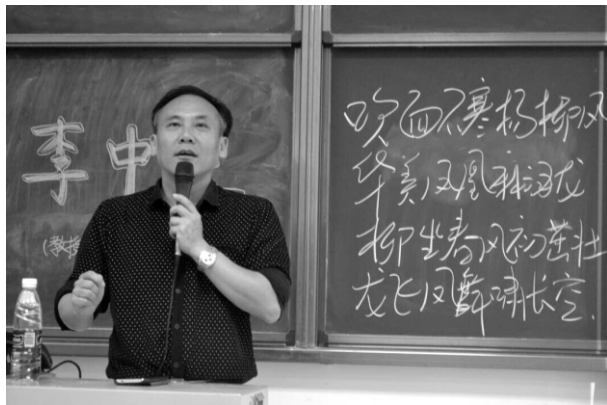 李中
(教授
吹面不寒杨柳风
华美凤凰
柳生春风初茁壮
龙飞凤舞啸长空.